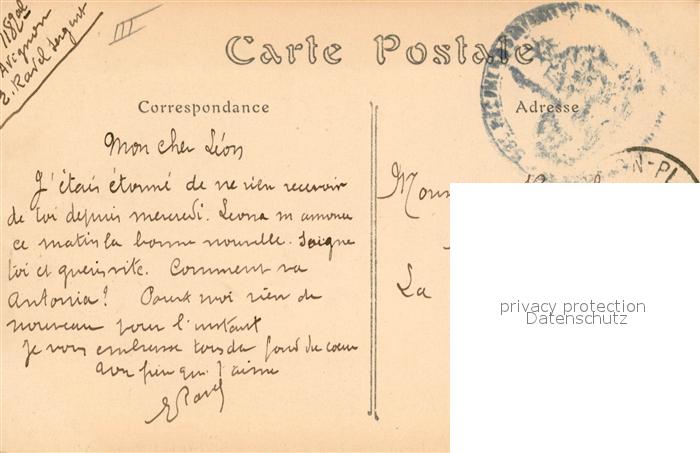 158e
Avignon
E. Ravel Sergent
III
Carte Postale
Correspondance
Adresse
Mon cher Léon
J'étais étonné de ne rien recevoir
de toi depuis mercredi. Leona m'annonce
ce matin la bonne nouvelle. Soigne
toi et guéris vite. Comment va
Antonia? Pour moi rien de
nouveau pour l'instant
Je vous embrasse tous du fond du coeur
qui t'aime
E Ravel
Mons
La
ON-PL
privacy protection
Datenschutz